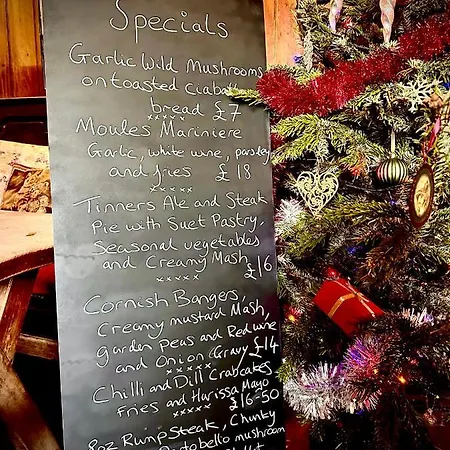 Specials
Garlic Wild Mushrooms
on toasted ciabatta
bread £7
xxxxx
Moules Mariniere
Garlic, white wine, parsley
and fries £18
xxxxx
Tinners Ale and Steak
Pie with Suet Pastry,
Seasonal vegetables
and Creamy Mash
£16
xxxxx
Cornish Bangers,
Creamy mustard Mash,
garden Peas and Red wine
and Onion Gravy £14
xxxxx
Chilli and Dill Crabcakes
fries and Harissa Mayo
xxxxx £16-50
8oz Rump Steak, Chunky
Portobello mushroom